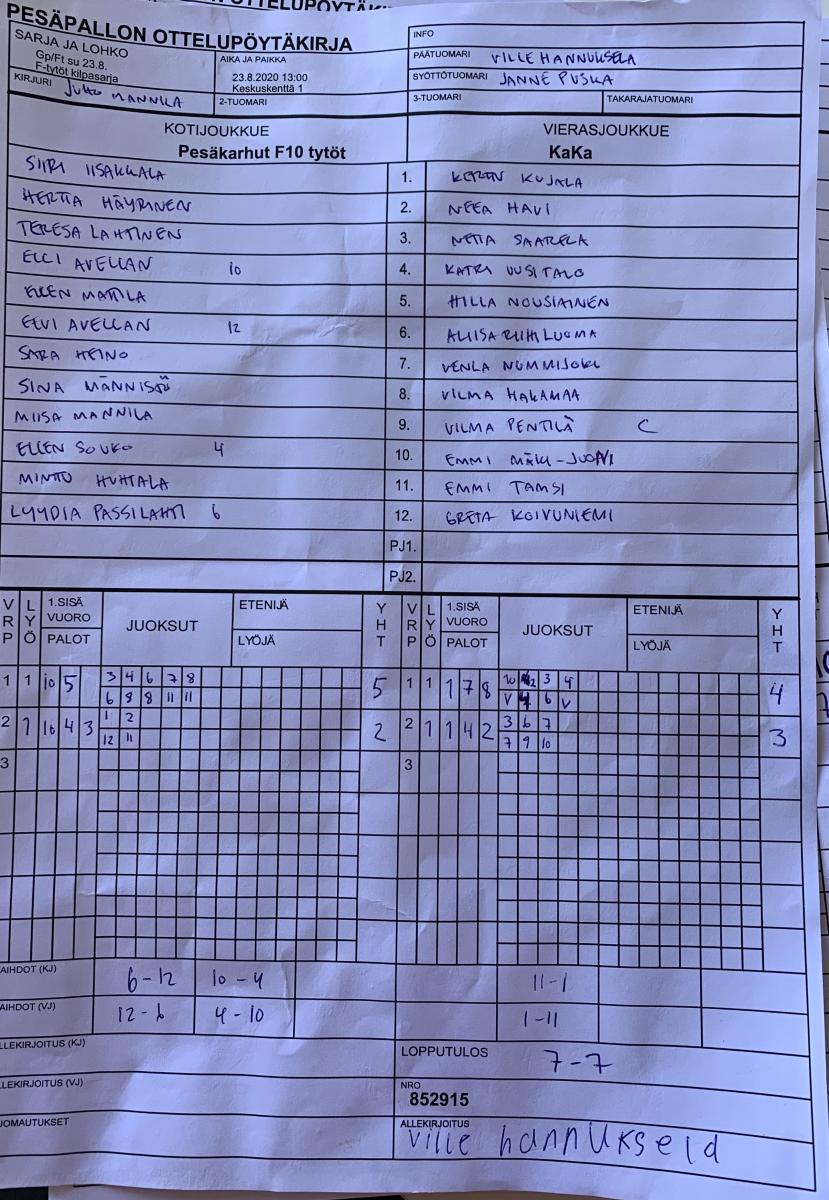 PESÄPALLON OTTELUPÖYTÄKIRJA
SARJA JA LOHKO
Gp/Ft su 23.8.
F-tytöt kilpasarja
AIKA JA PAIKKA
23.8.2020 13:00
Keskuskenttä 1
INFO
PÄÄTUOMARI VILLE HANNUKSELA
SYÖTTÖTUOMARI JANNE PUSKA
KIRJURI JUHO MANNILA
2-TUOMARI
3-TUOMARI
TAKARAJATUOMARI
KOTIJOUKKUE VIERASJOUKKUE
Pesäkarhut F10 tytöt KaKa
SIIRI IISAKKALA 1. KUJALA
HERTTA HÄYRINEN 2. NEEA HAVI
TERESA LAHTINEN 3. NETTA SAARELA
ELLI AVELLAN 10 4. KATRI UUSITALO
ELLEN MATTILA 5. HILLA NOUSIAINEN
ELVI AVELLAN 12 6. ALIISA RIIHILUOMA
SARA HEINO 7. VENLA NUMMIJOKI
SINA MÄNNISTÖ 8. VILMA HAKAMAA
MIISA MANNILA 9. VILMA PENTILÄ C
ELLEN SOUKO 4 10. EMMI
MINTTU HUHTALA 11. EMMI TAMSI
LYYDIA PASSILAHTI 6 12. GRETA KOIVUNIEMI
PJ1.
PJ2.
VRP LYÖ 1.SISÄ VUORO PALOT JUOKSUT ETENIJÄ LYÖJÄ YHT VRP LYÖ 1.SISÄ VUORO PALOT JUOKSUT ETENIJÄ LYÖJÄ YHT
1 1 10 5 3 4 6 7 8 5 1 1 1 7 8 10 3 4 4
6 8 8 11 11 V 6 V
2 1 10 4 3 1 2 2 2 1 1 4 2 3 6 7 3
12 11 7 9 10
3 3
AIHDOT (KJ) 6-12 10-4 11-1
AIHDOT (VJ) 12-6 4-10 1-11
LLEKIRJOITUS (KJ)
LOPPUTULOS 7-7
LLEKIRJOITUS (VJ)
NRO
852915
JOMAUTUKSET
ALLEKIRJOITUS
ville hannuksela